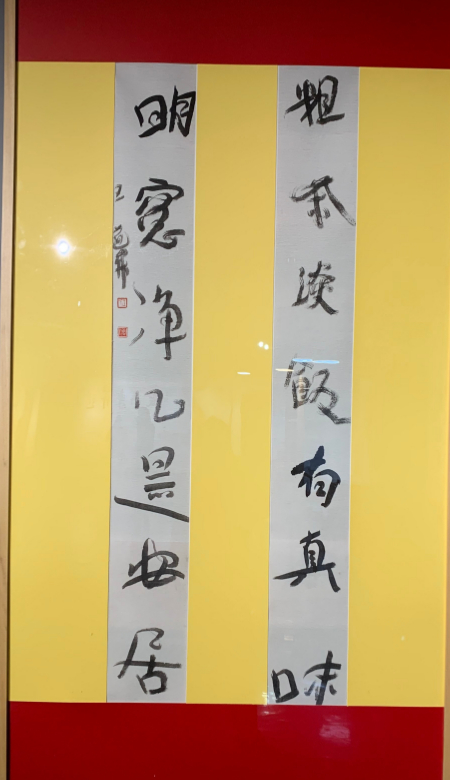 粗茶淡飯有真味
明窓净几是安居